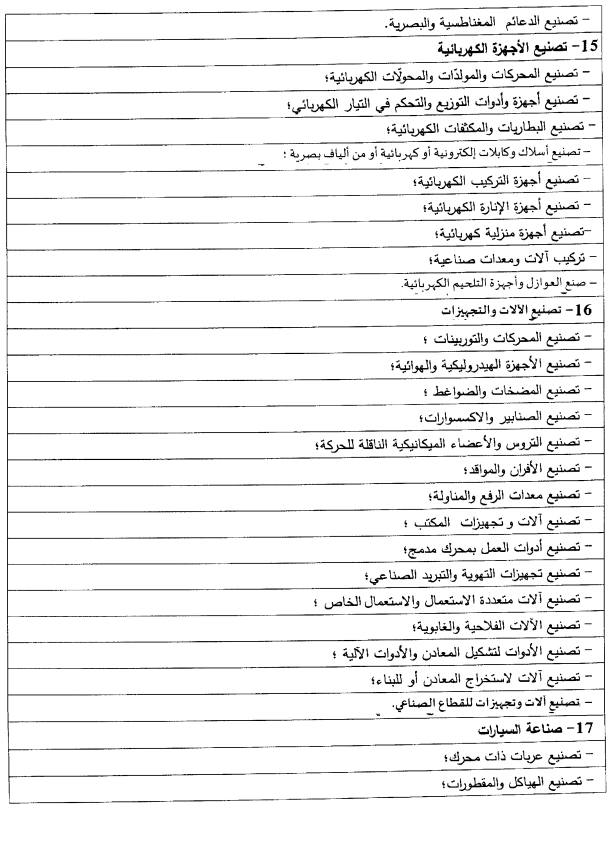 - تصنيع الدعائم المغناطسية والبصرية.
15- تصنيع الأجهزة الكهربائية
- تصنيع المحركات والمولدّات والمحولّات الكهربائية؛
- تصنيع أجهزة وأدوات التوزيع والتحكم في التيار الكهربائي؛
- تصنيع البطاريات والمكثفات الكهربائية؛
- تصنيع أسلاك وكابلات إلكترونية أو كهربائية أو من ألياف بصرية ؛
- تصنيع أجهزة التركيب الكهربائية؛
- تصنيع أجهزة الإنارة الكهربائية؛
-تصنيع أجهزة منزلية كهربائية؛
- تركيب آلات ومعدات صناعية؛
- صنع العوازل وأجهزة التلحيم الكهربائية.
16- تصنيع الآلات والتجهيزات
- تصنيع المحركات والتوربينات ؛
- تصنيع الأجهزة الهيدروليكية والهوائية؛
- تصنيع المضخات والضواغط ؛
- تصنيع الصنابير والاكسسوارات؛
- تصنيع التروس والأعضاء الميكانيكية الناقلة للحركة؛
- تصنيع الأفران والمواقد؛
- تصنيع معدات الرفع والمناولة؛
- تصنيع آلات و تجهيزات المكتب ؛
- تصنيع أدوات العمل بمحرك مدمج؛
- تصنيع تجهيزات التهوية والتبريد الصناعي؛
- تصنيع آلات متعددة الاستعمال والاستعمال الخاص ؛
- تصنيع الآلات الفلاحية والغابوية؛
- تصنيع الأدوات لتشكيل المعادن والأدوات الآلية ؛
- تصنيع آلات لاستخراج المعادن أو للبناء؛
- تصنيع آلات وتجهيزات للقطاع الصناعي.
17- صناعة السيارات
- تصنيع عربات ذات محرك؛
- تصنيع الهياكل والمقطورات؛